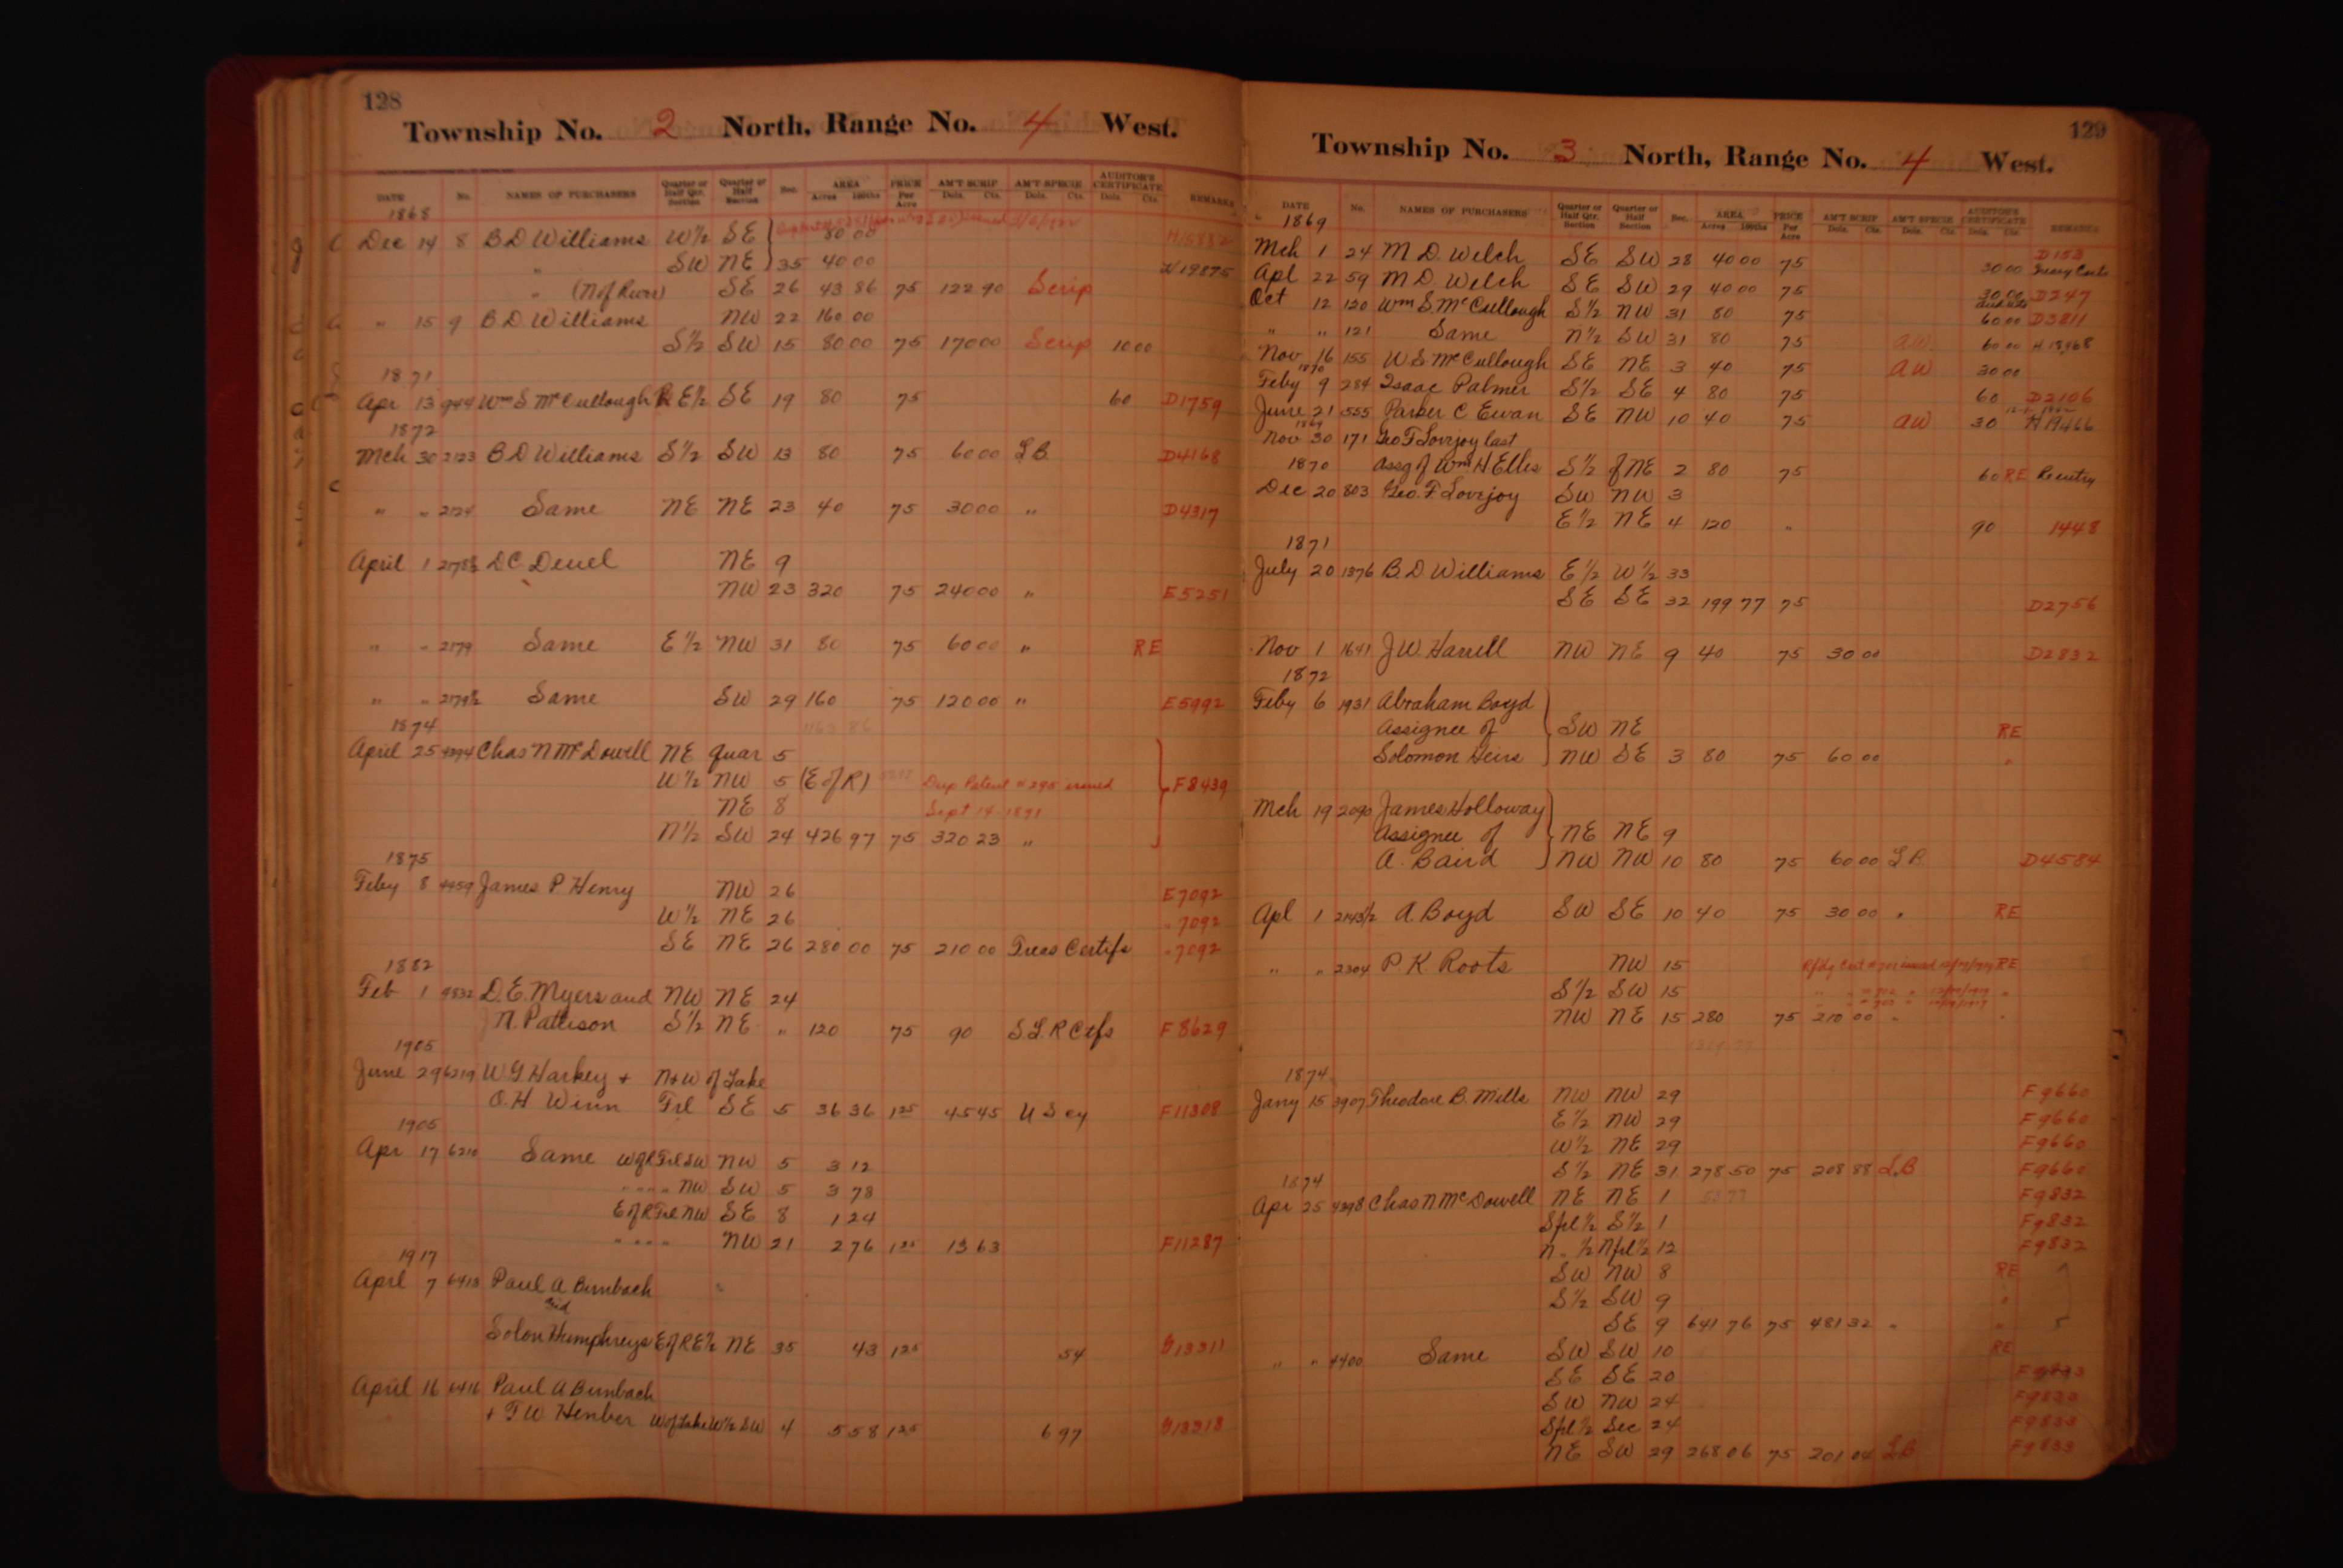 128
Township No. 2 North, Range No. 4 West.
DATE No. NAMES OF PURCHASERS Quarter or Half Qtr. Section Quarter or Half Section Sec. AREA Acres 100ths PRICE Per Acre AM'T SCRIP Dols. Cts. AM'T SPECIE Dols. Cts. AUDITOR'S CERTIFICATE Dols. Cts. REMARKS
1868
Dec 14 8 B D Williams W½ SE 80 00 H15832
" SW NE 35 40 00 H19875
" (N of River) SE 26 43 86 75 122 90 Scrip
" 15 9 B D Williams NW 22 160 00
S½ SW 15 80 00 75 170 00 Scrip 10 00
1871
Apr 13 944 Wm S McCullough E½ SE 19 80 75 60 D1759
1872
Mch 30 2123 B D Williams S½ SW 13 80 75 60 00 L.B. D4168
" " 2124 Same NE NE 23 40 75 30 00 " D4317
April 1 2178½ D C Deuel NE 9
NW 23 320 75 240 00 " E5251
" " 2179 Same E½ NW 31 80 75 60 00 " RE
" " 2179½ Same SW 29 160 75 120 00 " E5992
1874
April 25 4394 Chas N McDowell NE quar 5
W½ NW 5 (E of R) Dup Patent # 295 issued F8439
NE 8 Sept 14 1891
N½ SW 24 426 97 75 320 23 "
1875
Feby 8 4459 James P Henry NW 26 E7092
W½ NE 26 " 7092
SE NE 26 280 00 75 210 00 Treas Certifs " 7092
1882
Feb 1 9832 D. E. Myers and NW NE 24
N. Pattison S½ NE " 120 75 90 S L R Ctfs F8629
1905
June 29 6219 W G Harkey + N+W of Lake
O. H Winn Frl SE 5 36 36 1 25 45 45 U S cy F11308
1905
Apr 17 6210 Same W of R Frl SW NW 5 3 12
" " " " NW SW 5 3 78
E of R Frl NW SE 8 1 24
" " " " NW 21 2 76 1 25 13 63 F11287
1917
April 7 6413 Paul A Birnbach
and
Solon Humphreys E of R E½ NE 35 43 1 25 54 G13311
April 16 6416 Paul A Birnbach
+ T W Henber W of Lake W½ SW 4 5 58 1 25 6 97 G13318
129
Township No. 3 North, Range No. 4 West.
DATE No. NAMES OF PURCHASERS Quarter or Half Qtr. Section Quarter or Half Section Sec. AREA Acres 100ths PRICE Per Acre AM'T SCRIP Dols. Cts. AM'T SPECIE Dols. Cts. AUDITOR'S CERTIFICATE Dols. Cts. REMARKS
1869
Mch 1 24 M D. Welch SE SW 28 40 00 75 30 00 D153
Apl 22 59 M D Welch SE SW 29 40 00 75 30 00 D247
Oct 12 120 Wm S. McCullough S½ NW 31 80 75 60 00 D3811
" " 121 Same N½ SW 31 80 75 AW 60 00 H 18468
Nov 16 155 W S McCullough SE NE 3 40 75 AW 30 00
1870
Feby 9 284 Isaac Palmer S½ SE 4 80 75 60 D2106
June 21 555 Parker C Ewan SE NW 10 40 75 AW 30 H19466
1869
Nov 30 171 Geo F Lovejoy last
1870
assg of Wm H Ellis S½ of NE 2 80 75 60 RE Reentry
Dec 20 803 Geo. F Lovejoy SW NW 3
E½ NE 4 120 " 90 1448
1871
July 20 1376 B. D Williams E½ W½ 33
SE SE 32 199 77 75 D2756
Nov 1 1641 J W. Harrell NW NE 9 40 75 30 00 D2832
1872
Feby 6 1931 Abraham Boyd
Assignee of SW NE RE
Solomon Heirs NW SE 3 80 75 60 00 "
Mch 19 2090 James Holloway
Assignee of NE NE 9
A. Baird NW NW 10 80 75 60 00 L B. D4584
Apl 1 2143½ A. Boyd SW SE 10 40 75 30 00 " RE
" " 2304 P. K. Roots NW 15 RE
S½ SW 15 "
NW NE 15 280 75 210 00 " "
1874
Jany 15 3907 Theodore B. Mills NW NW 29 F9660
E½ NW 29 F9660
W½ NE 29 F9660
S½ NE 31 278 50 75 208 88 L.B F9660
1874
Apr 25 4398 Chas N McDowell NE NE 1 F9832
Sfrl½ S½ 1 F9832
N " ½ Nfrl½ 12 F9832
SW NW 8 RE
S½ SW 9 "
SE 9 641 76 75 481 32 " "
" " 4400 Same SW SW 10 RE
SE SE 20 F9833
SW NW 24 F9833
Sfrl½ Sec 24 F9833
NE SW 29 268 06 75 201 04 L.B F9833